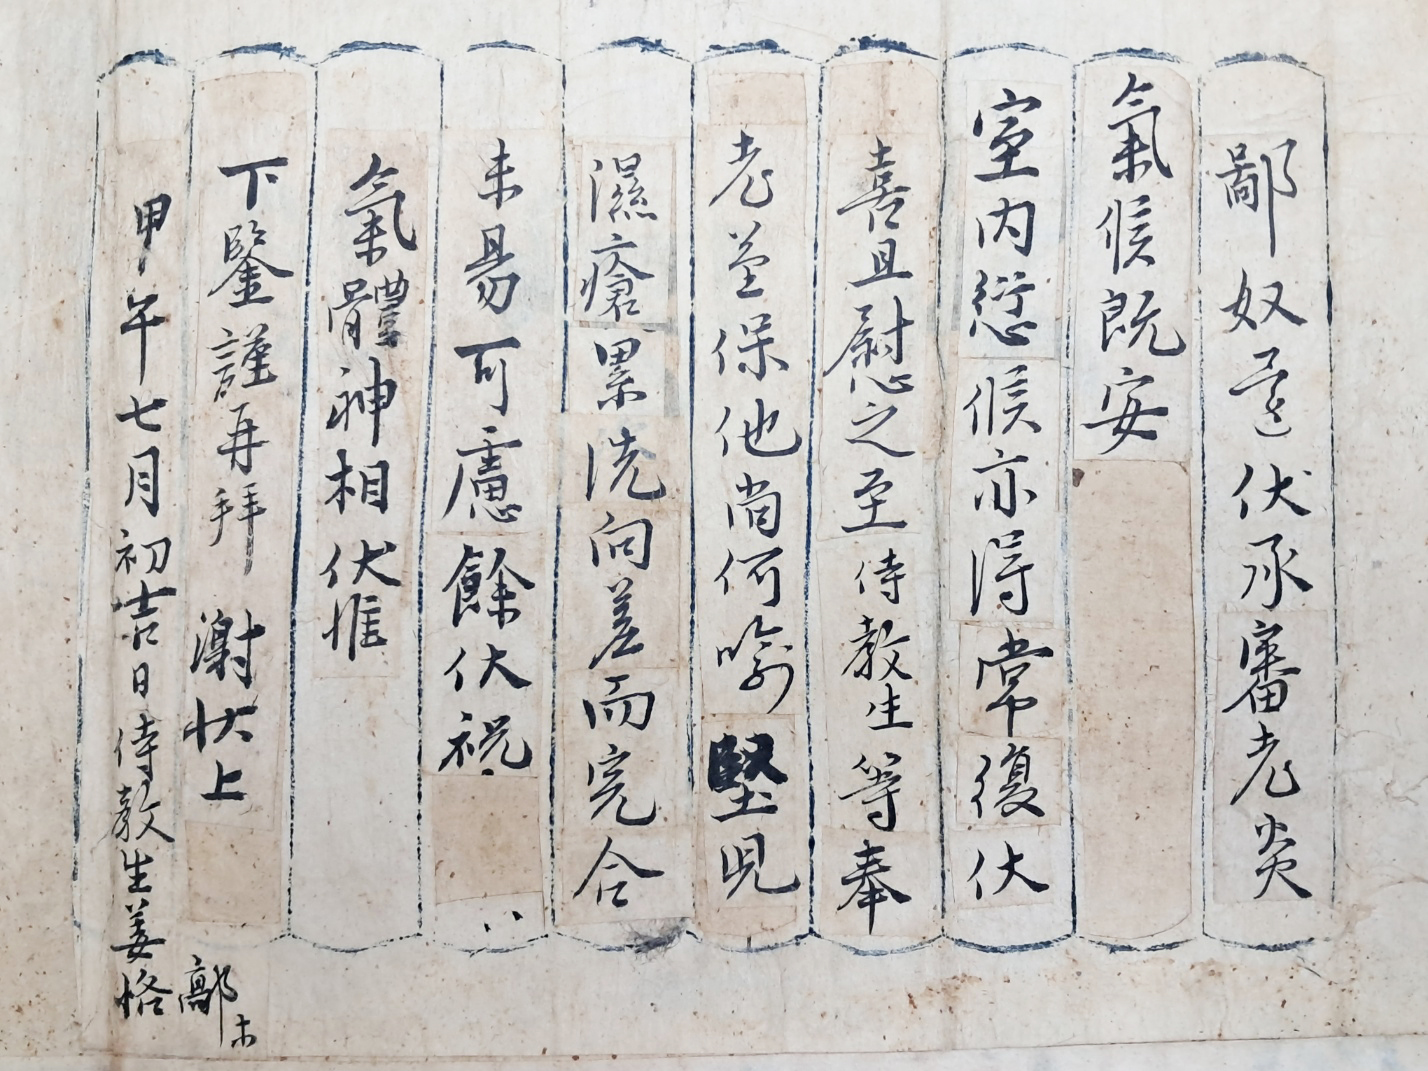 鄙奴還伏承審老炎
氣候旣安
室內愆候亦得常復伏
喜且慰之至侍教生等奉
老荃保他尙何喩堅児
濕瘡累洗向差而完合
未易可慮餘伏祝
氣體神相伏惟
下鑒謹再拜 謝狀上
甲午七月初吉日侍教生姜恪